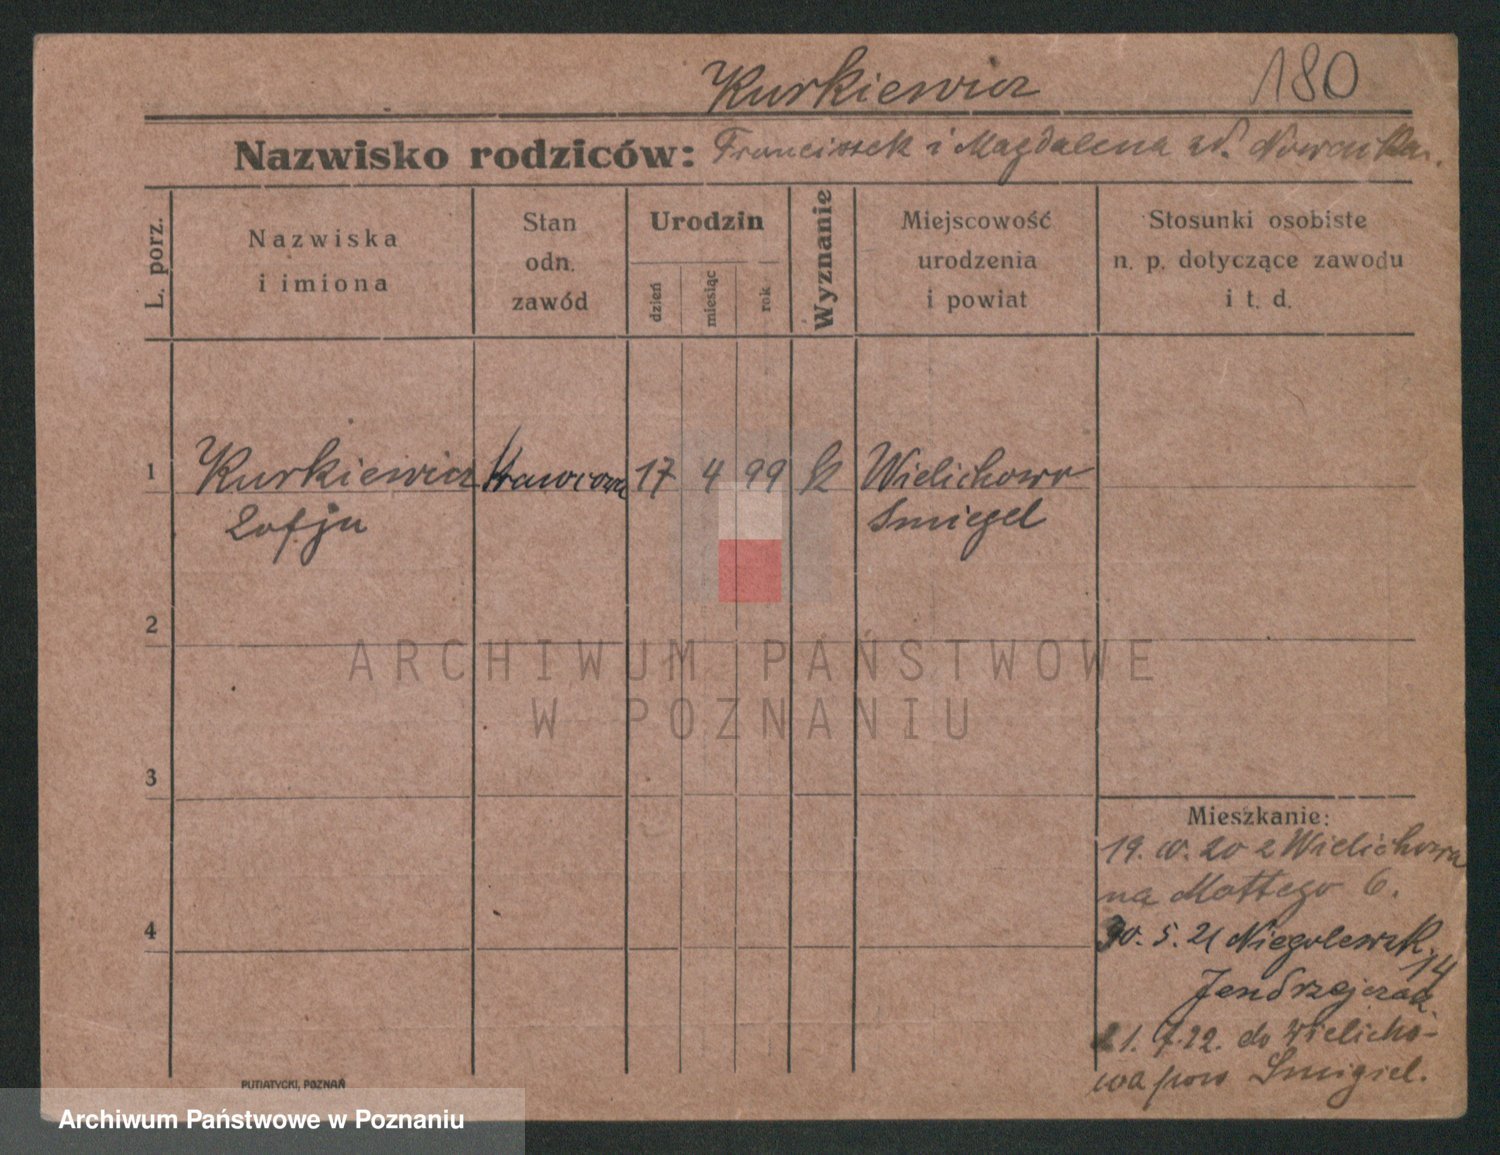 Kurkiewicz 180
Nazwisko rodziców: Franciszek i Magdalena
L. porz.
Nazwiska
i imiona
Stan
odn.
zawód
Urodzin
dzień
miesiąc
rok
Wyznanie
Miejscowość
urodzenia
i powiat
Stosunki osobiste
n. p. dotyczące zawodu
i t. d.
1 Kurkiewicz Krawcowa 17 4 99 k Wielichowo
Zofja Śmigel
2
ARCHIWUM PAŃSTWOWE
W POZNANIU
3
Mieszkanie:
19. 10. 20 z Wielichowa
na Mottego 6.
4
30. 5. 21 Niegolewsk.
14
Jendrzejczak
21. 7. 22. do Wielicho-
wa pow Śmigiel.
PUTIATYCKI, POZNAŃ
Archiwum Państwowe w Poznaniu